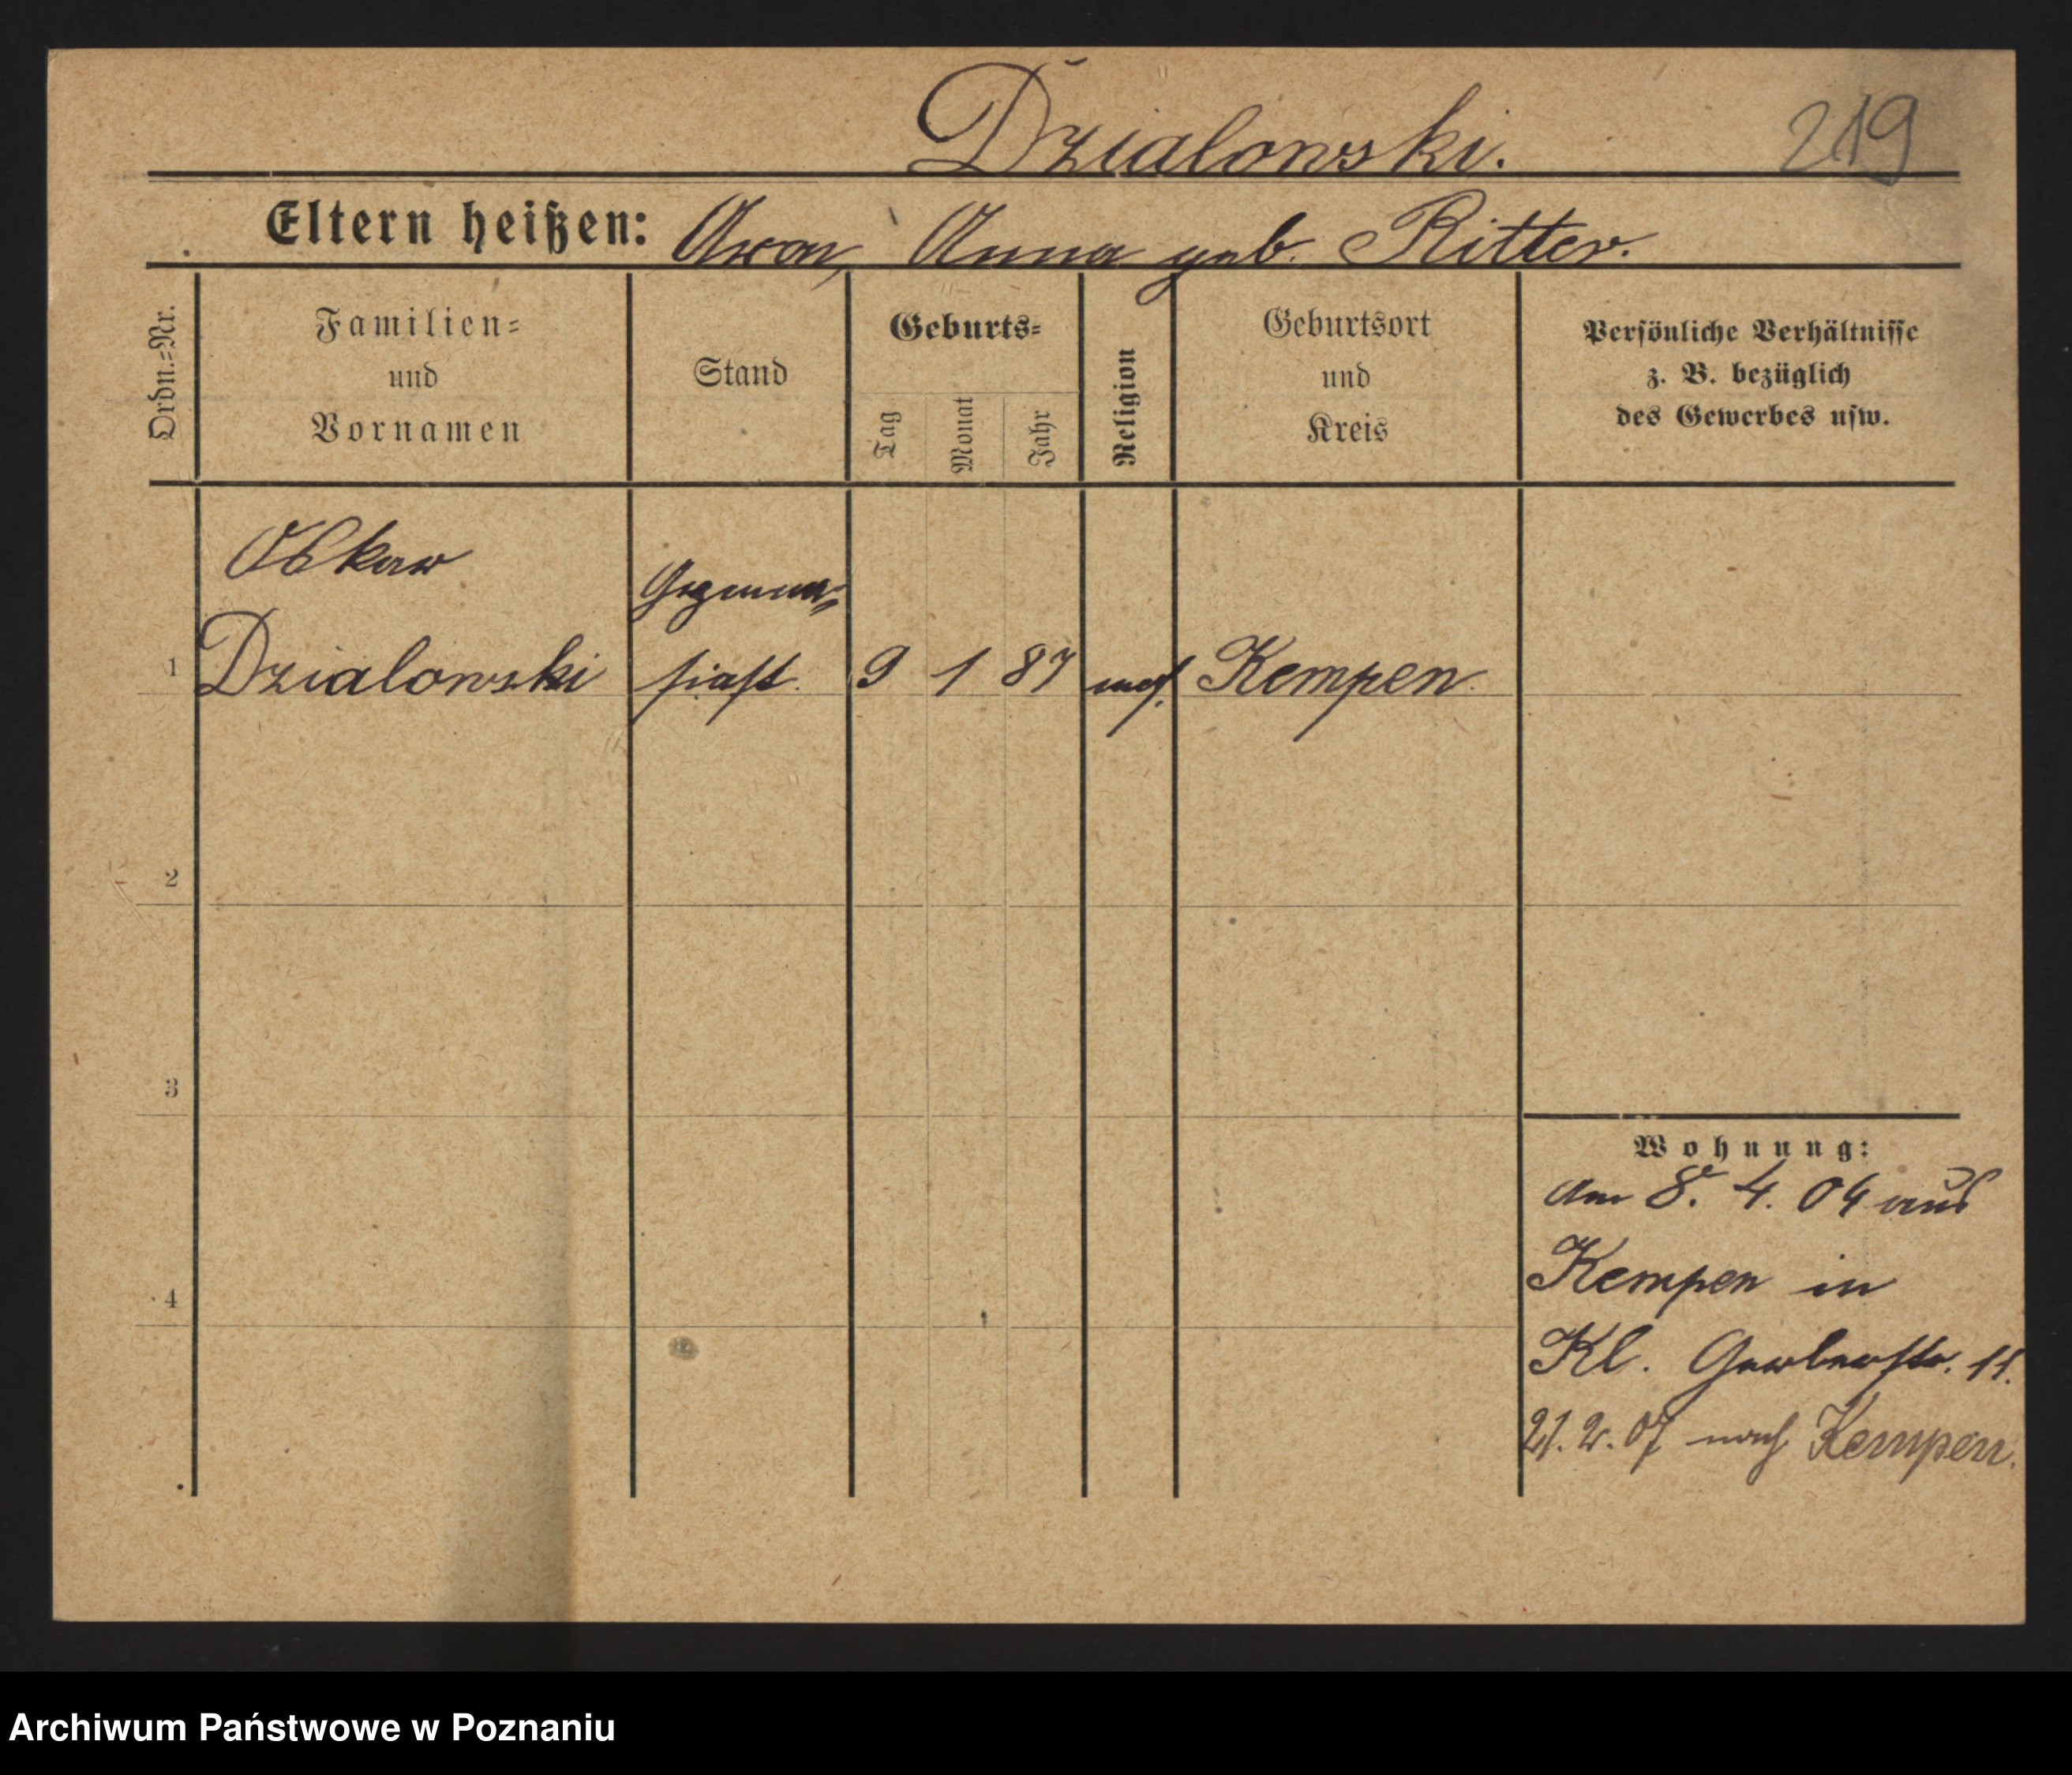 Dzialowski.
219
Eltern heißen: Aron, Anna geb. Ritter.
Ordn.-Nr.
Familien-
und
Vornamen
Stand
Geburts-
Tag
Monat
Jahr
Religion
Geburtsort
und
Kreis
Persönliche Verhältnisse
z. B. bezüglich
des Gewerbes usw.
Oskar
Gymna-
1 Dzialowski siast. 9 1 87 mos. Kempen.
2
3
4
Wohnung:
Am 8. 4. 04 aus
Kempen in
Kl. Gerberstr. 11.
21. 2. 07 nach Kempen.
Archiwum Państwowe w Poznaniu